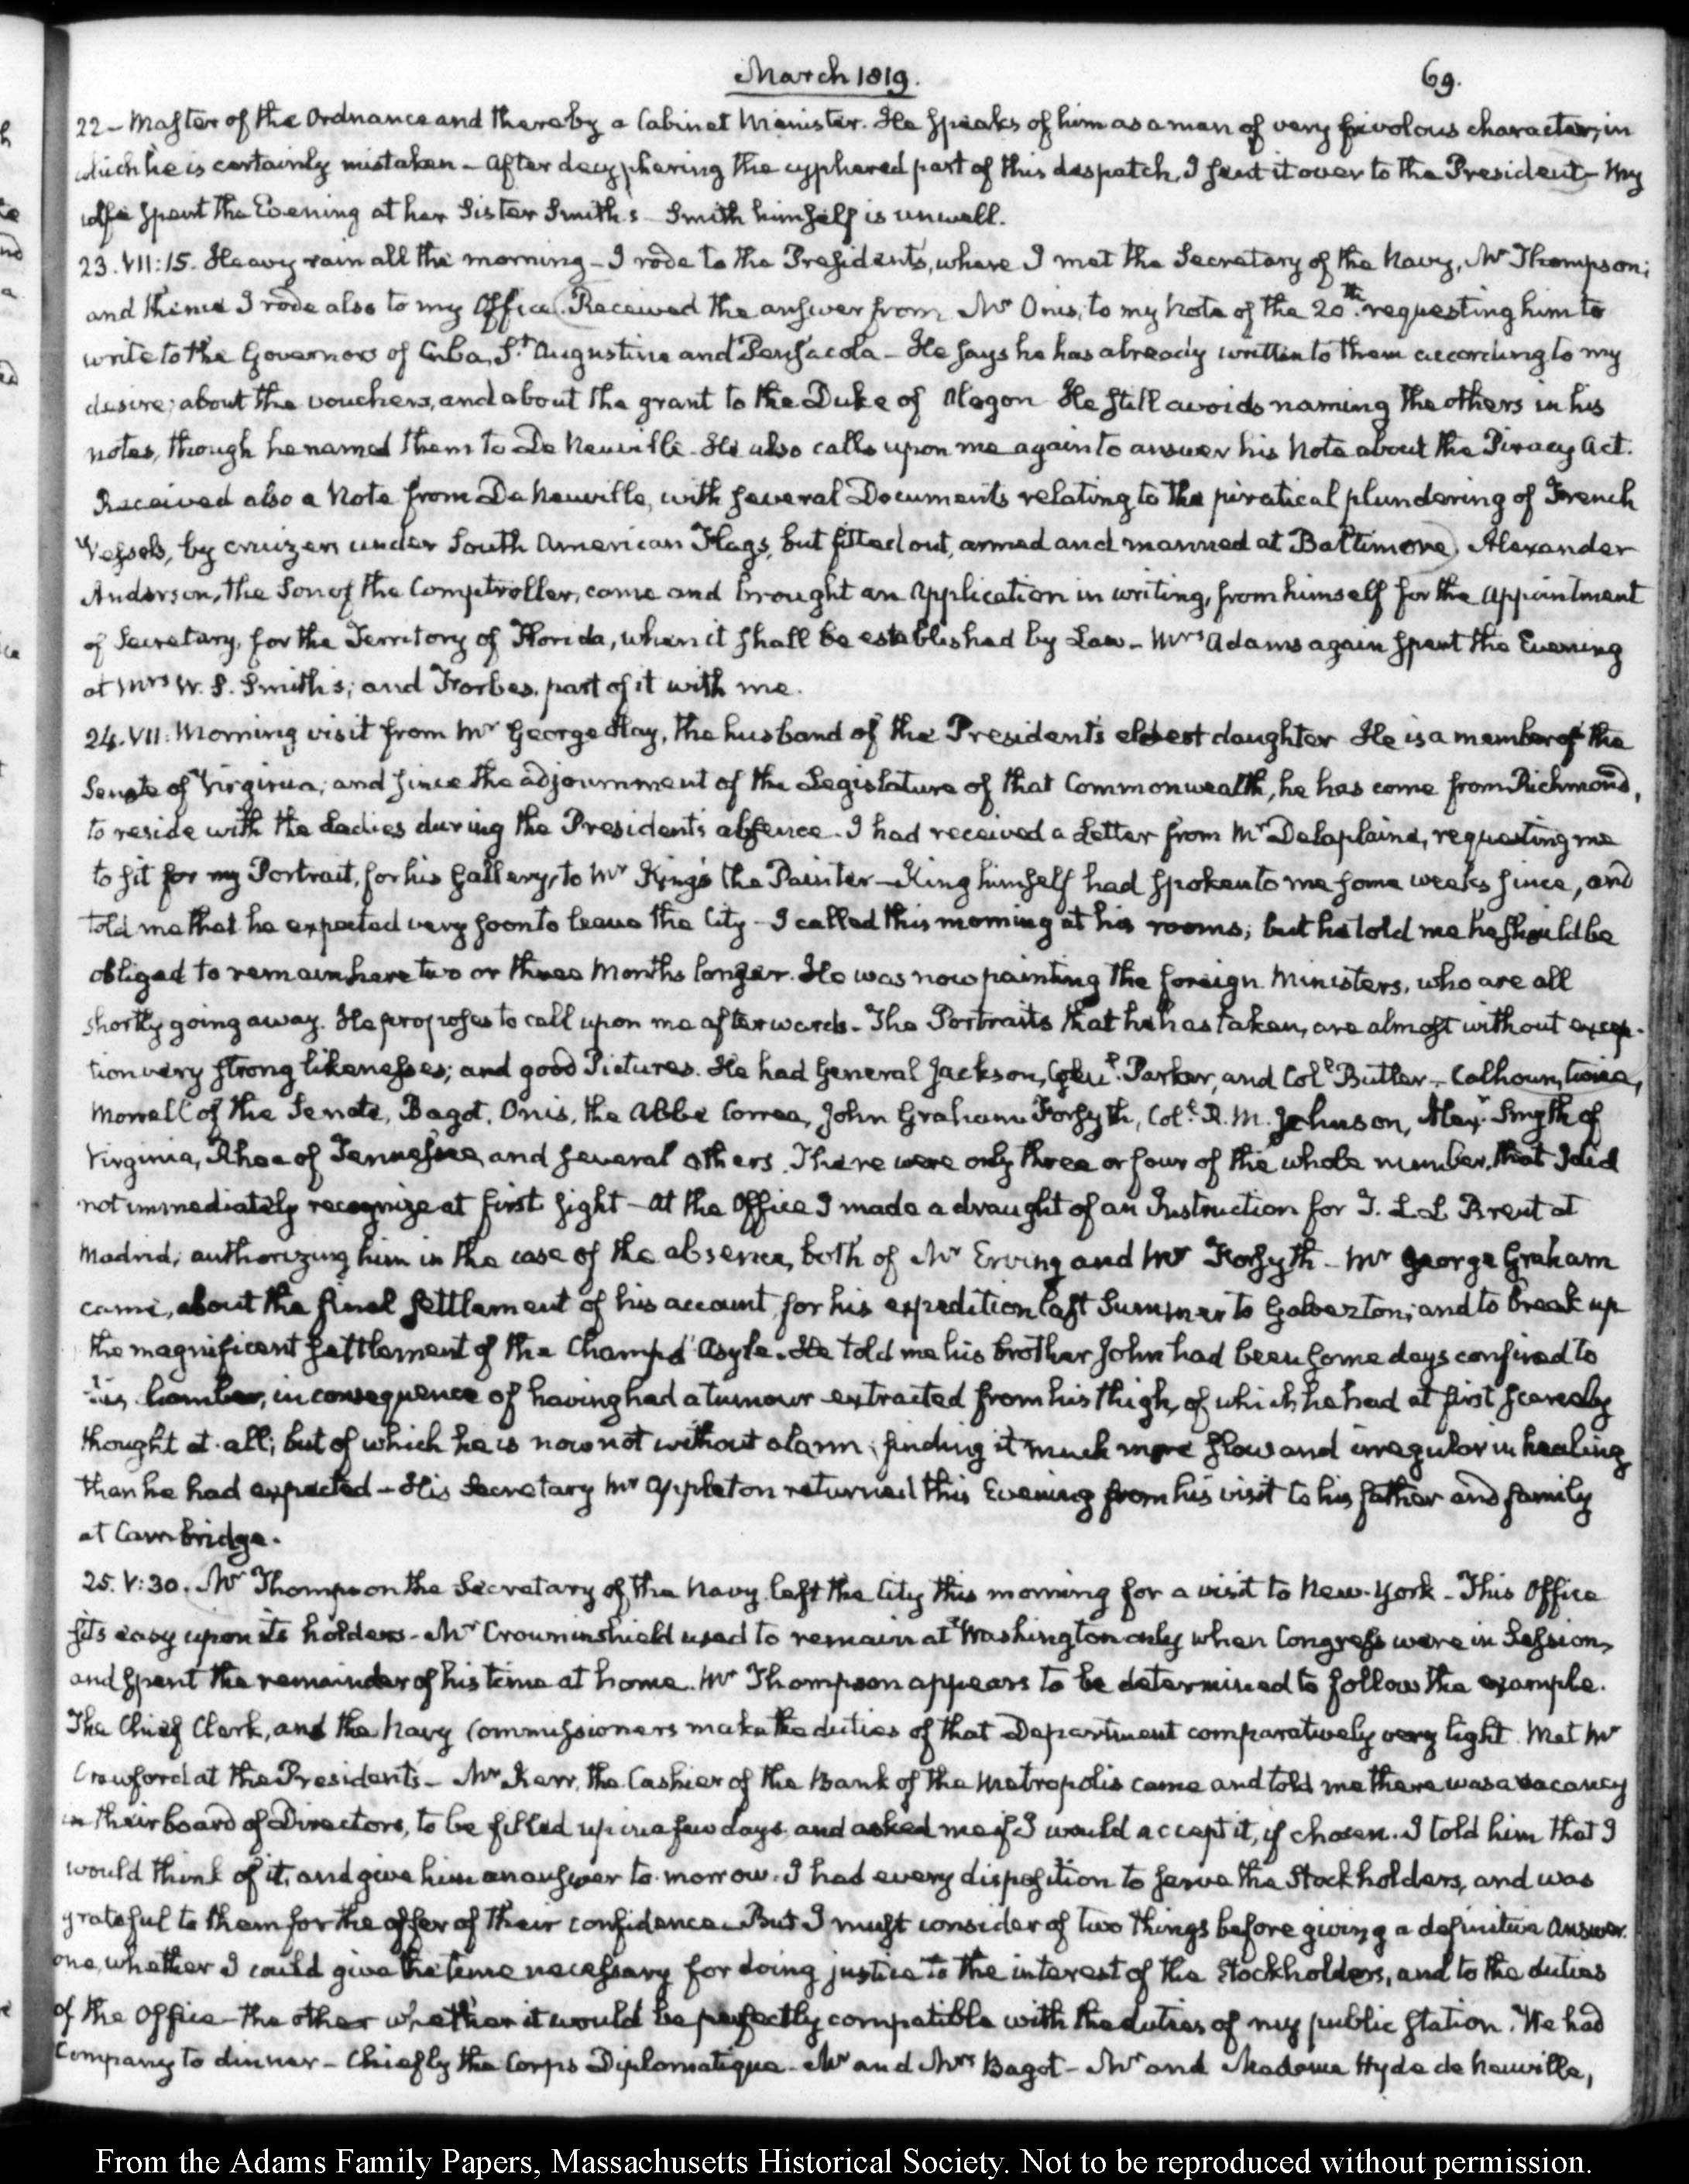 March 1819.
69.
22 - Master of the Ordnance and thereby a Cabinet Minister. He speaks of him as a man of very frivolous character, in
which he is certainly mistaken - After decyphering the cyphered part of this despatch, I sent it over to the President - My
wife spent the Evening at her Sister Smith's - Smith himself is unwell.
23. VII:15. Heavy rain all the morning - I rode to the President's, where I met the Secretary of the Navy, Mr Thompson;
and thence I rode also to my Office. Received the answer from Mr Onis, to my Note of the 20th. requesting him to
write to the Governors of Cuba, St Augustine and Pensacola - He says he has already written to them according to my
desire; about the vouchers, and about the grant to the Duke of Alagon He still avoids naming the others in his
notes, though he named them to De Neuville. He also calls upon me again to answer his Note about the Piracy Act.
Received also a Note from De Neuville, with several Documents relating to the piratical plundering of French
Vessels, by cruizers under South American Flags, but fitted out, armed and manned at Baltimore. Alexander
Anderson, the Son of the Comptroller, came and brought an Application in writing, from himself for the appointment
of Secretary, for the Territory of Florida, when it shall be established by Law - Mrs Adams again spent the Evening
at Mrs W. S. Smith's; and Forbes, part of it with me.
24. VII: Morning visit from Mr George Hay, the husband of the President's eldest daughter He is a member of the
Senate of Virginia; and since the adjournment of the Legislature of that Commonwealth, he has come from Richmond,
to reside with the Ladies during the President's absence. I had received a Letter from Mr Delaplaine, requesting me
to sit for my Portrait, for his Gallery, to Mr King's the Painter - King himself had spoken to me some weeks since, and
told me that he expected very soon to leave the City - I called this morning at his rooms; but he told me he should be
obliged to remain here two or three Months longer. He was now painting the foreign Ministers, who are all
shortly going away. He proposes to call upon me afterwards - The Portraits that he has taken, are almost without excep-
tion very strong likenesses; and good Pictures. He had General Jackson, Parker, and Coll Butler - Calhoun, twice,
Morrell of the Senate, Bagot, Onis, the Abbé Correa, John Graham Forsyth, Coll. R. M. Johnson, Alexr. Smyth of
Virginia, Rhea of Tennessee, and several others. There were only three or four of the whole number, that I did
not immediately recognize at first sight - At the Office I made a draught of an Instruction for T. L L Brent at
Madrid; authorizing him in the case of the absence, both of Mr Erving and Mr Forsyth - Mr George Graham
came, about the final settlement of his account, for his expedition last Summer to Galvezton; and to break up
the magnificent settlement of the Champ d'Asyle. He told me his brother John had been some days confined to
his chamber, in consequence of having had a tumour extracted from his thigh, of which he had at first scarcely
thought at all; but of which he is now not without alarm; finding it much more slow and irregular in healing
than he had expected - His Secretary Mr Appleton returned this Evening from his visit to his father and family
at Cambridge.
25. V:30. Mr Thompson the Secretary of the Navy left the City this morning for a visit to New-York - This Office
sits easy upon its holders - Mr Crowninshield used to remain at Washington only when Congress were in Session,
and spent the remainder of his time at home. Mr Thompson appears to be determined to follow the example.
The Chief Clerk, and the Navy Commissioners make the duties of that Department comparatively very light. Met Mr
Crawford at the President's - Mr Kerr, the Cashier of the Bank of the Metropolis came and told me there was a vacancy
in their board of Directors, to be filled up in a few days, and asked me if I would accept it, if chosen. I told him that I
would think of it, and give him an answer to-morrow. I had every disposition to serve the Stockholders, and was
grateful to them for the offer of their confidence. But I must consider of two things before giving a definitive answer.
one, whether I could give the time necessary for doing justice to the interest of the Stockholders, and to the duties
of the Office - the other whether it would be perfectly compatible with the duties of my public station. We had
Company to dinner - Chiefly the Corps Diplomatique - Mr and Mrs Bagot - Mr and Madame Hyde de Neuville,
From the Adams Family Papers, Massachusetts Historical Society. Not to be reproduced without permission.